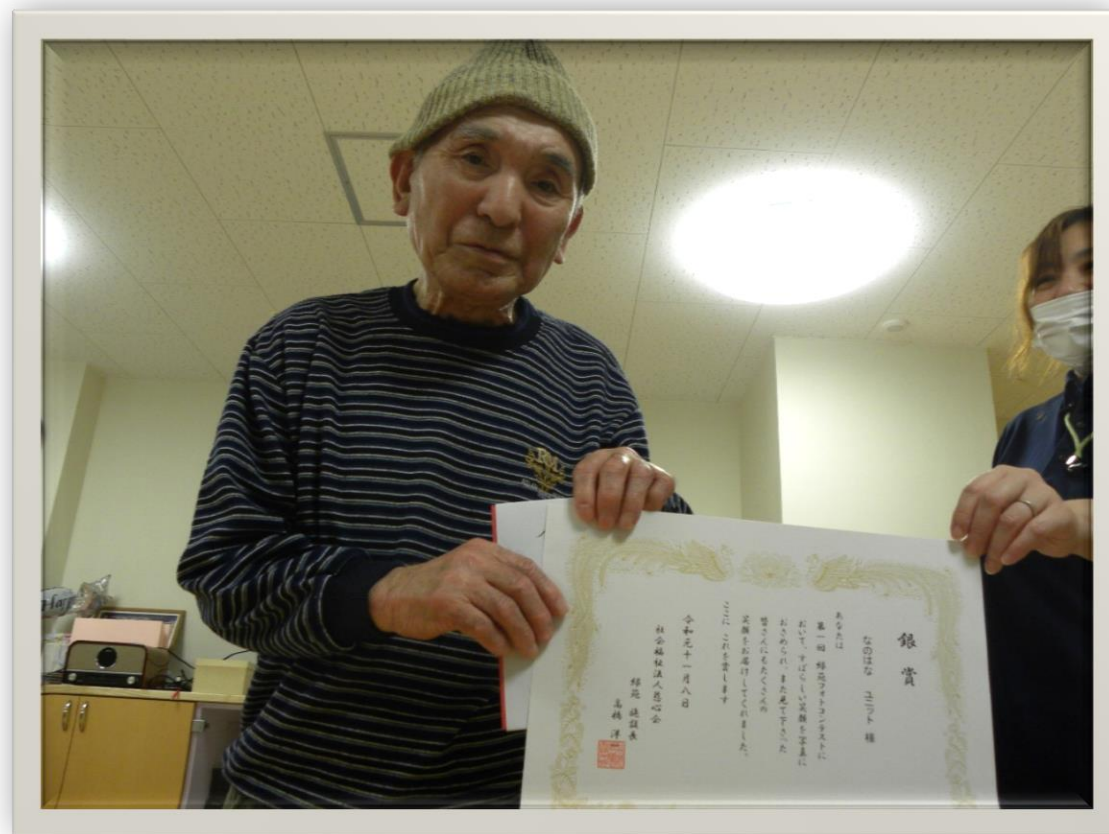 銀賞
なのはな ユニット 様
あなたは
第一回 緑苑フォトコンテストに
おいて、すばらしい笑顔を写真に
おさめられ、また見て下さった
皆さんにもたくさんの
笑顔をお届けしてくれました。
ここに これを賞します
令和元十一月八日
社会福祉法人慈心会
緑苑 施設長
高橋 洋